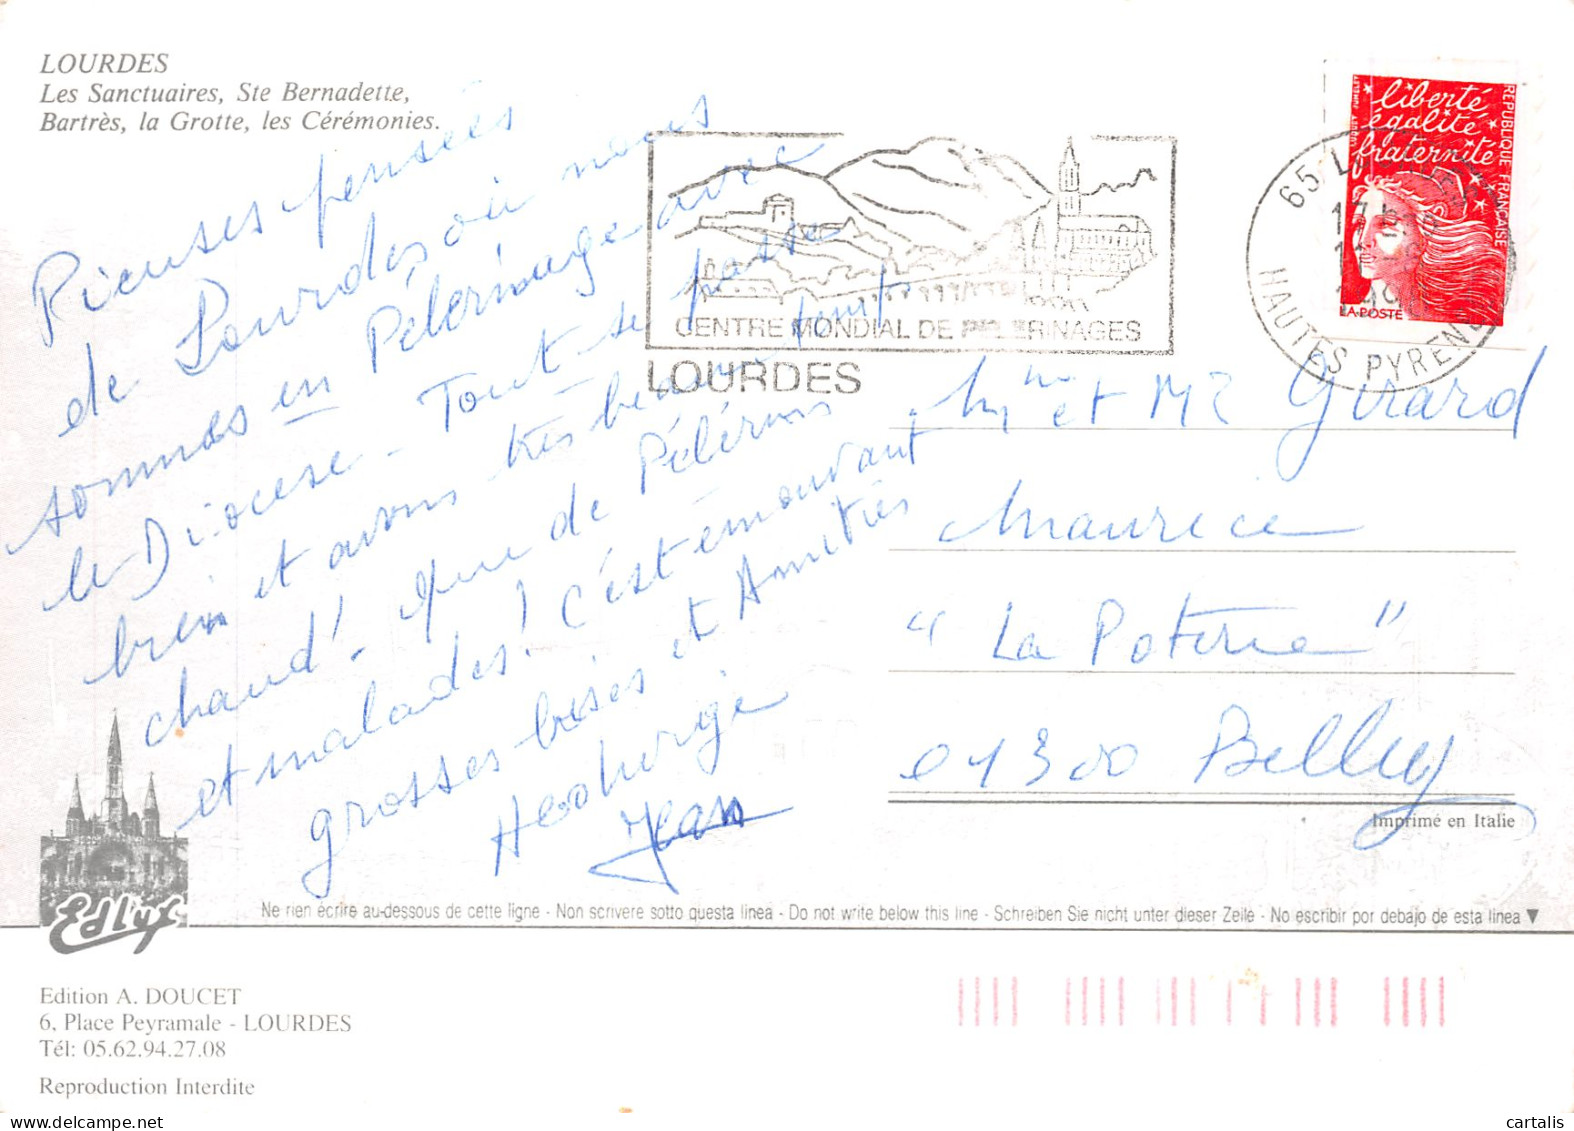 LOURDES
Les Sanctuaires, Ste Bernadette,
Bartrès, la Grotte, les Cérémonies.
Pieuses pensées
de Lourdes où nous
sommes en Pélerinage avec
le Diocèse - Tout se passe
bien et avons très beau temps
chaud! - Que de Pélerins
et malades! C'est émouvant
grosses bises et Amitiés
Jean
CENTRE MONDIAL DE PELERINAGES
LOURDES
65
HAUTES PYRENEES
liberté
égalité
fraternité
REPUBLIQUE FRANÇAISE
LA POSTE
Mme et Mr Girard
Maurice
"La Poterie"
01300 Belley
Imprimé en Italie
Edlux
Ne rien écrire au-dessous de cette ligne - Non scrivere sotto questa linea - Do not write below this line - Schreiben Sie nicht unter dieser Zeile - No escribir por debajo de esta linea ▼
Edition A. DOUCET
6, Place Peyramale - LOURDES
Tél: 05.62.94.27.08
Reproduction Interdite
cartalis